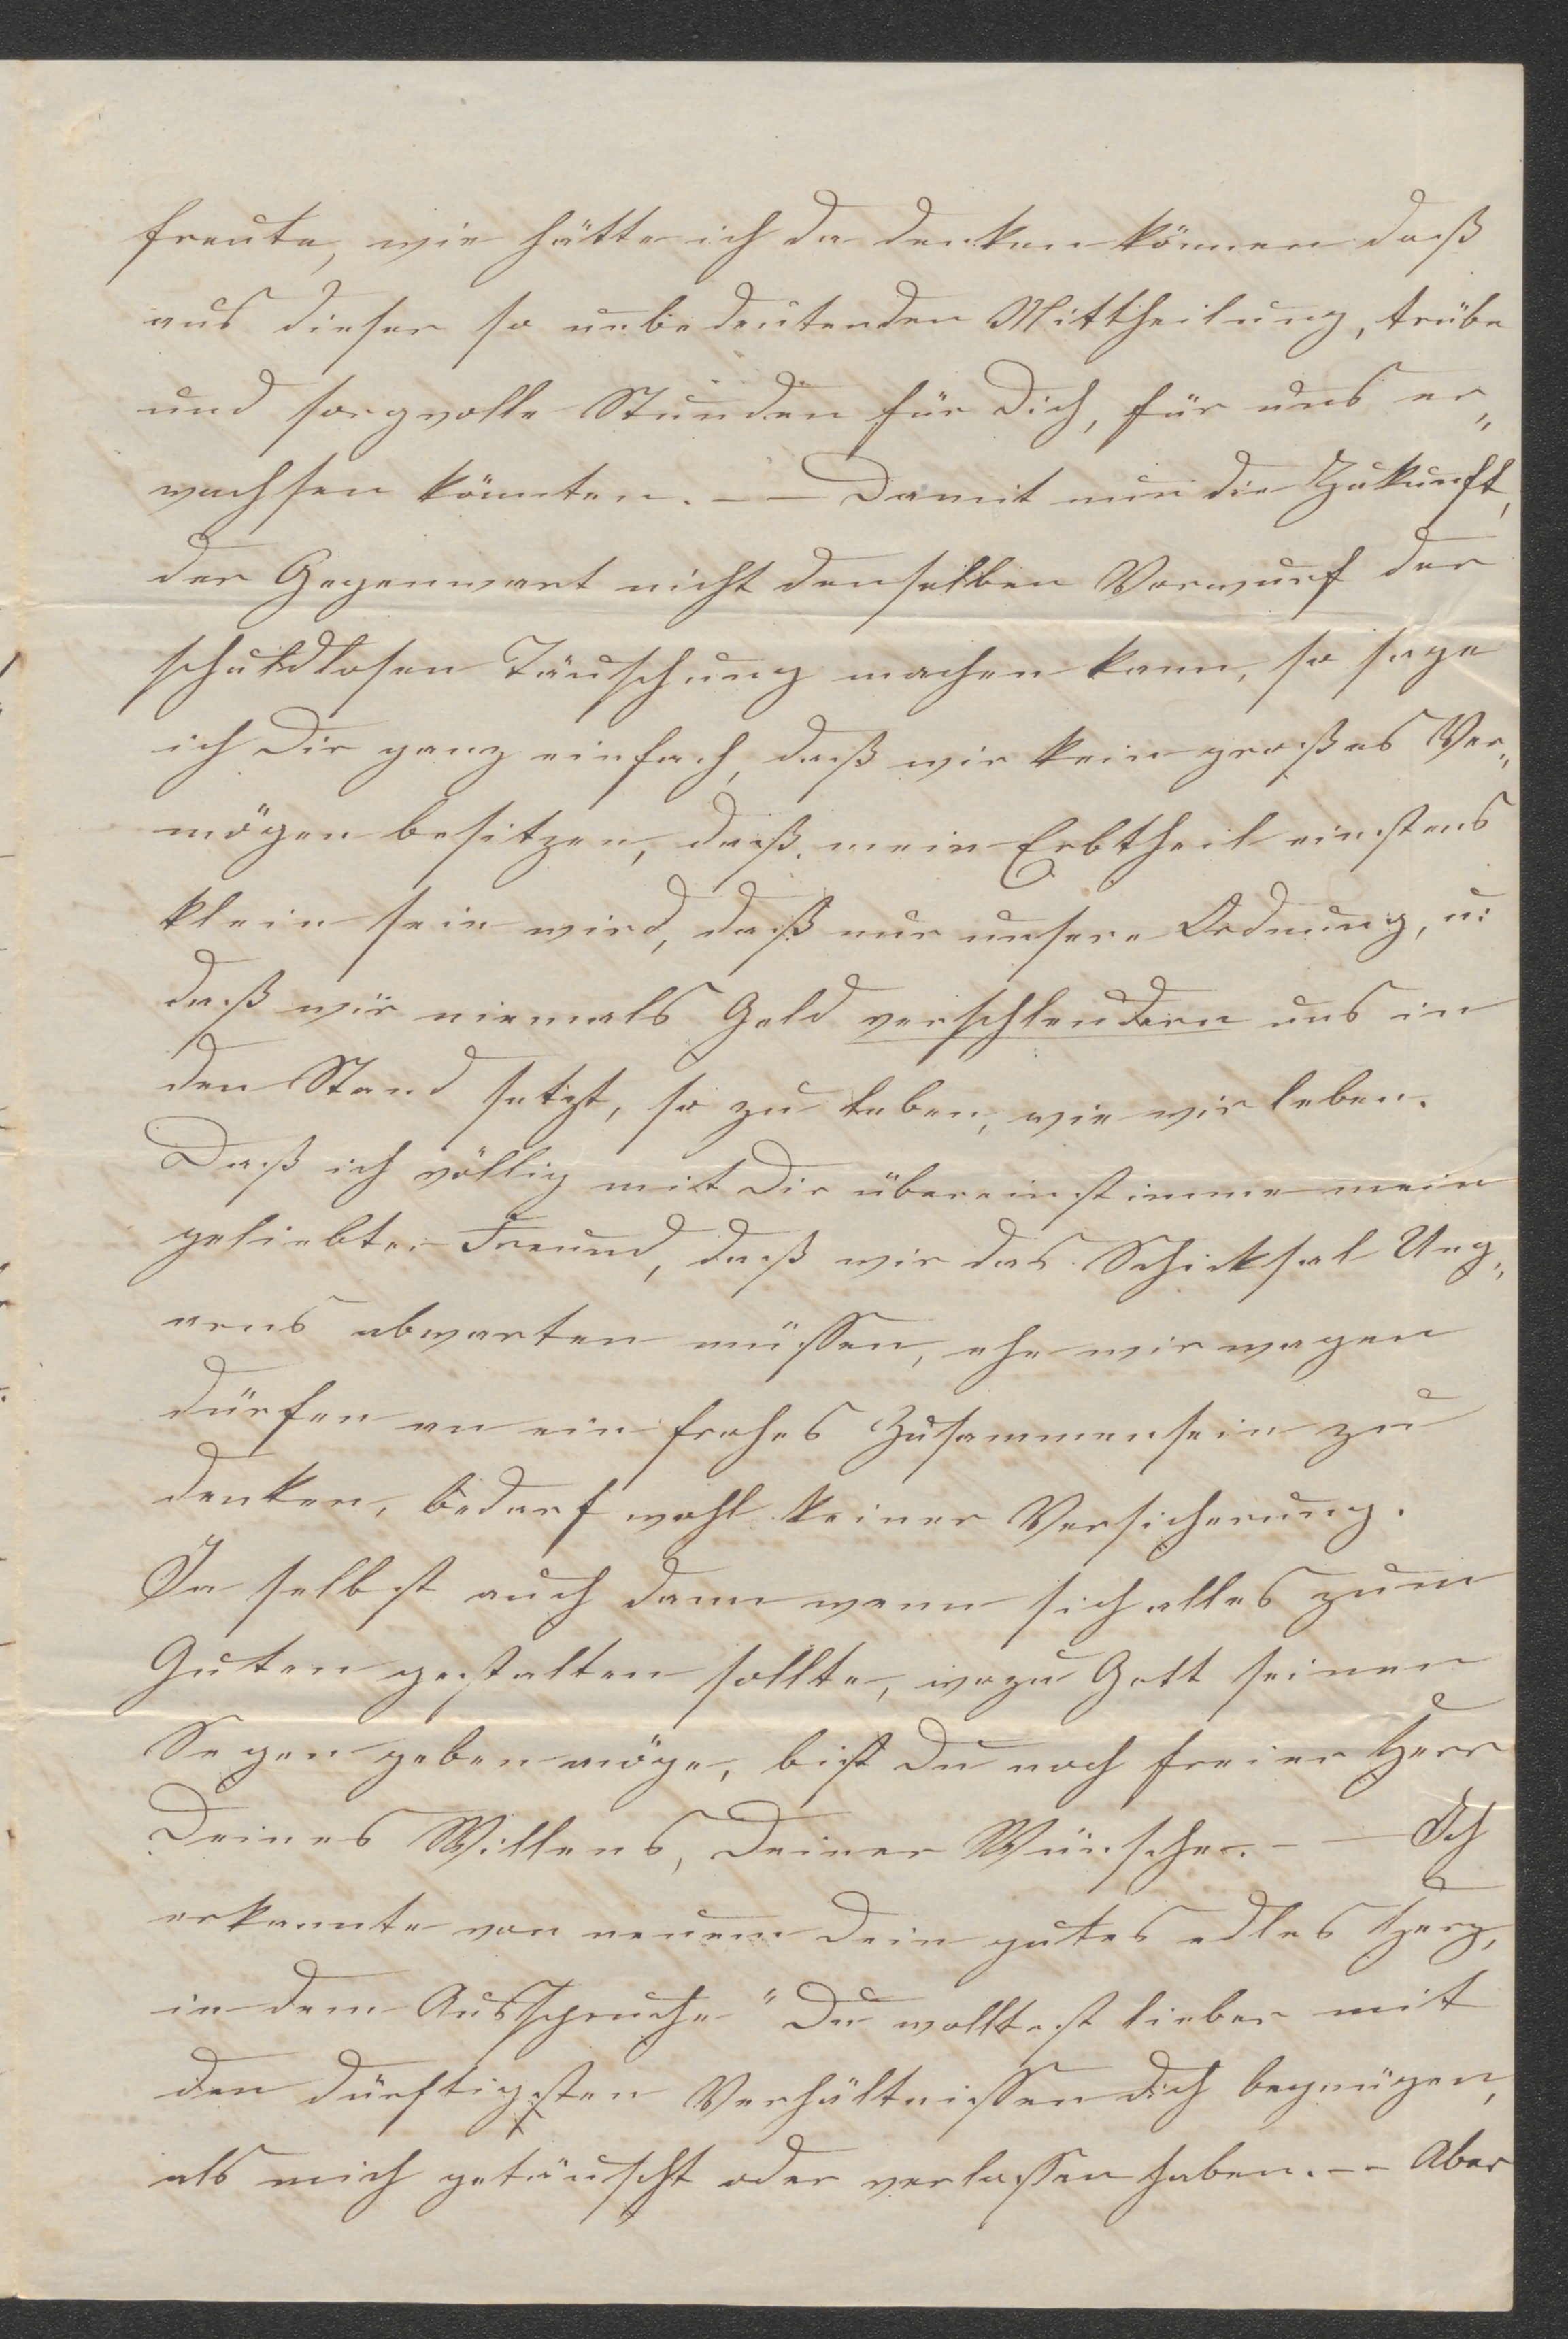 freute, wie hätte ich da denken können daß
aus dieser so unbedeutenden Mittheilung, trübe
und sorgvolle Stunden für Dich, für uns er„
wachsen könnten. – – Damit nun die Zukunft,
der Gegenwart nicht denselben Vorwurf der
schuldlosen Täuschung machen kann, so sage
ich Dir ganz einfach, daß wir kein großes Ver„
mögen besitzen, daß mein Erbtheil einstens
klein sein wird, daß nur unsere Ordnung, u:
daß wir niemals Geld verschleudern uns in
den Stand setzt, so zu leben, wie wir leben.
Daß ich völlig mit Dir übereinstimme mein
geliebter Freund, daß wir das Schicksal Ung„
arns abwarten müssen, ehe wir wagen
dürfen an ein frohes Zusammensein zu
denken, bedarf wohl keiner Versicherung.
Ja selbst auch dann wenn sich alles zum
Guten gestalten sollte, wozu Gott seinen
Segen geben möge, bist Du noch freier Herr
Deines Willens, Deiner Wünsche. – – Ich
erkannte von neuem Dein gutes edles Herz,
in dem Ausspruche "Du wolltest lieber mit
den dürftigsten Verhältnissen dich begnügen,
als mich getäuscht oder verlassen haben. – – Aber